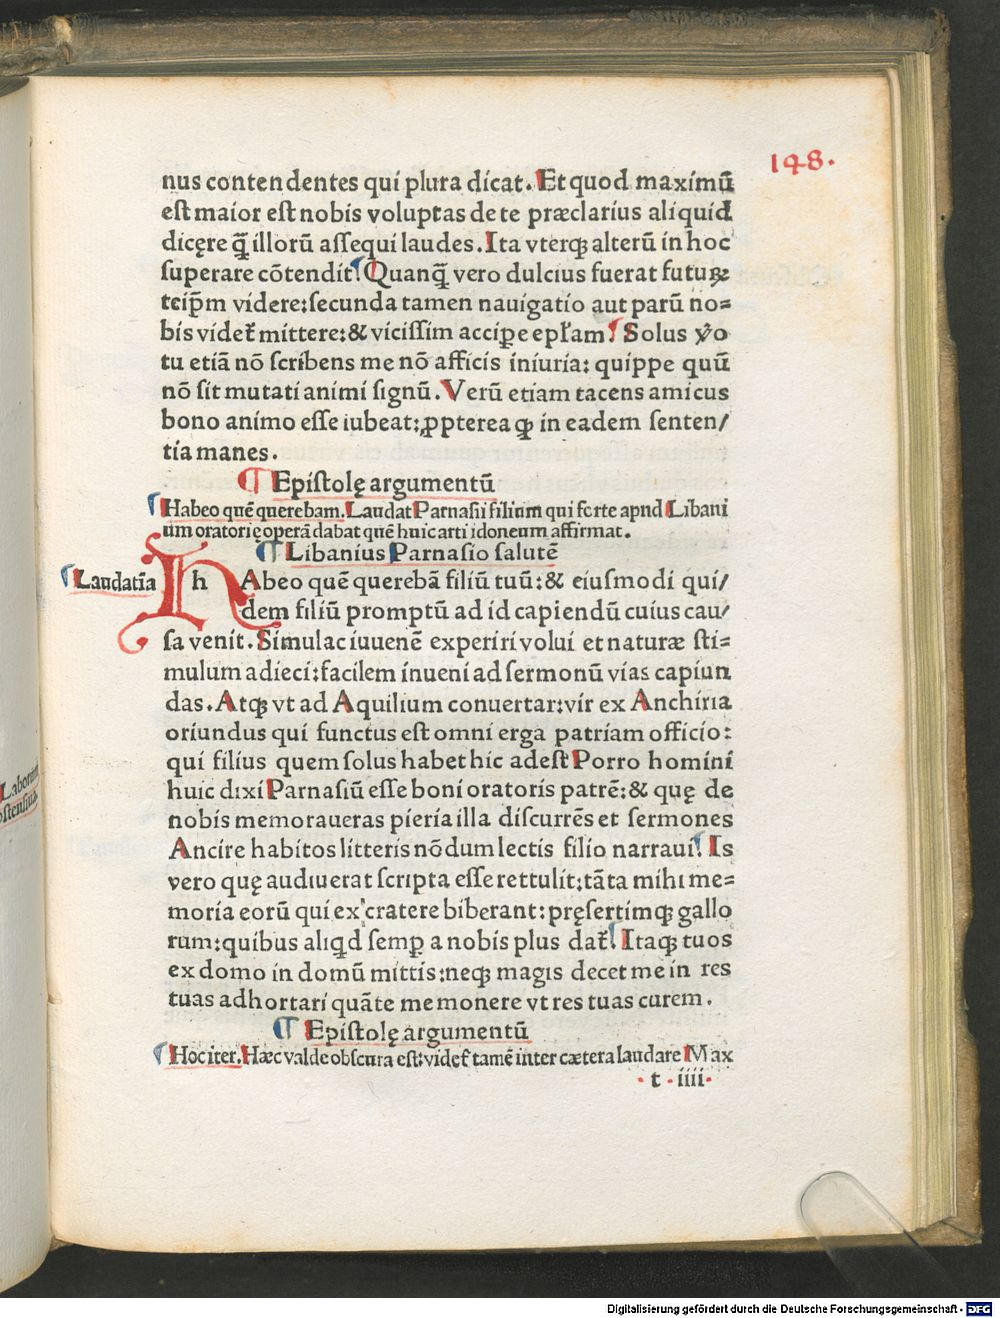 148.
nus contendentes qui plura dicat. Et quod maximū
est maior est nobis voluptas de te præclarius aliquid
dicęre q̄ illorū assequi laudes. Ita vterqꝫ alterū in hoc
superare cōtendit! Quanq̄ vero dulcius fuerat futuꝝ
teip̄m videre: secunda tamen nauigatio aut parū no=
bis videt̄ mittere: & vicissim accipe ep̄łam! Solus ꝟo
tu etiā nō scribens me nō afficis iniuria: quippe quū
nō sit mutati animi signū. Verū etiam tacens amicus
bono animo esse iubeat: ꝓpterea ꝙ in eadem senten/
tia manes.
¶ Epistolę argumentū
Habeo quē querebam. Laudat Parnasii filium qui forte apud Libani
um oratorię operā dabat quē huic arti idoneum affirmat.
¶ Libanius Parnasio salutē
Laudatīa
h Abeo quē querebā filiū tuū: & eiusmodi qui/
dem filiū promptū ad id capiendū cuius cau/
sa venit. Simulac iuuenē experiri volui et naturæ sti=
mulum adieci: facilem inueni ad sermonū vias capiun
das. Atqꝫ vt ad Aquilium conuertar: vir ex Anchiria
oriundus qui functus est omni erga patriam officio:
qui filius quem solus habet hic adest Porro homini
huic dixi Parnasiū esse boni oratoris patrē: & quę de
nobis memoraueras pieria illa discurrēs et sermones
Ancire habitos litteris nōdum lectis filio narraui! Is
vero quę audiuerat scripta esse rettulit: tāta mihi me=
moria eorū qui ex cratere biberant: pręsertimqꝫ gallo
rum: quibus aliqd semꝑ a nobis plus dat̄! Itaqꝫ tuos
ex domo in domū mittis: neqꝫ magis decet me in res
tuas adhortari quāte me monere vt res tuas curem.
¶ Epistolę argumentū
Hoc iter. Hæc valde obscura est: videt̄ tamē inter cætera laudare Max
t iiii
Laborant
ostensiua
Digitalisierung gefördert durch die Deutsche Forschungsgemeinschaft - DFG